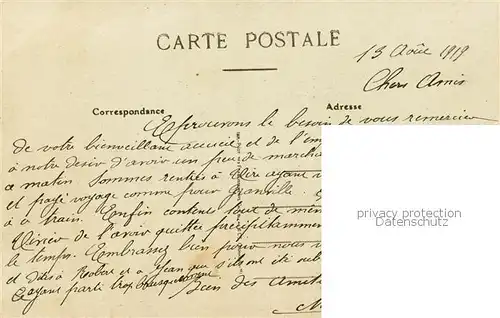 CARTE POSTALE
13 Août 1919
Chers Amis
Correspondance
Adresse
Eprouvons le besoin de vous remercier
de votre bienveillant accueil et de l'em
à notre desir d'avoir un peu de marcha
a matin Sommes rentrés à Vire ayant
et payé voyage comme pour Granville.
à train. Enfin contents tout de mêm
de l'avoir quittée précipitamment
le temps. Embrassez bien pour nous
et dites à Robert et à Jean que s'ils ont été
ayant parti trop brusquement Bien des Amit
privacy protection
Datenschutz